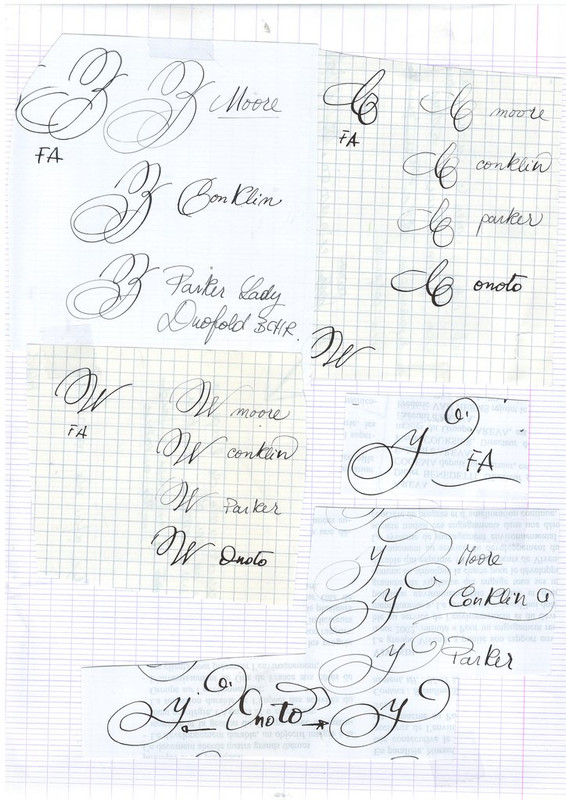 B B Moore
FA
B Conklin
B Parker Lady
Duofold BCHR.
C C moore
FA
C conklin
C parker
C onoto
W
W W moore
FA
W conklin
W Parker
W Onoto
y
FA
y Moore
y Conklin
y Parker
y Onoto y